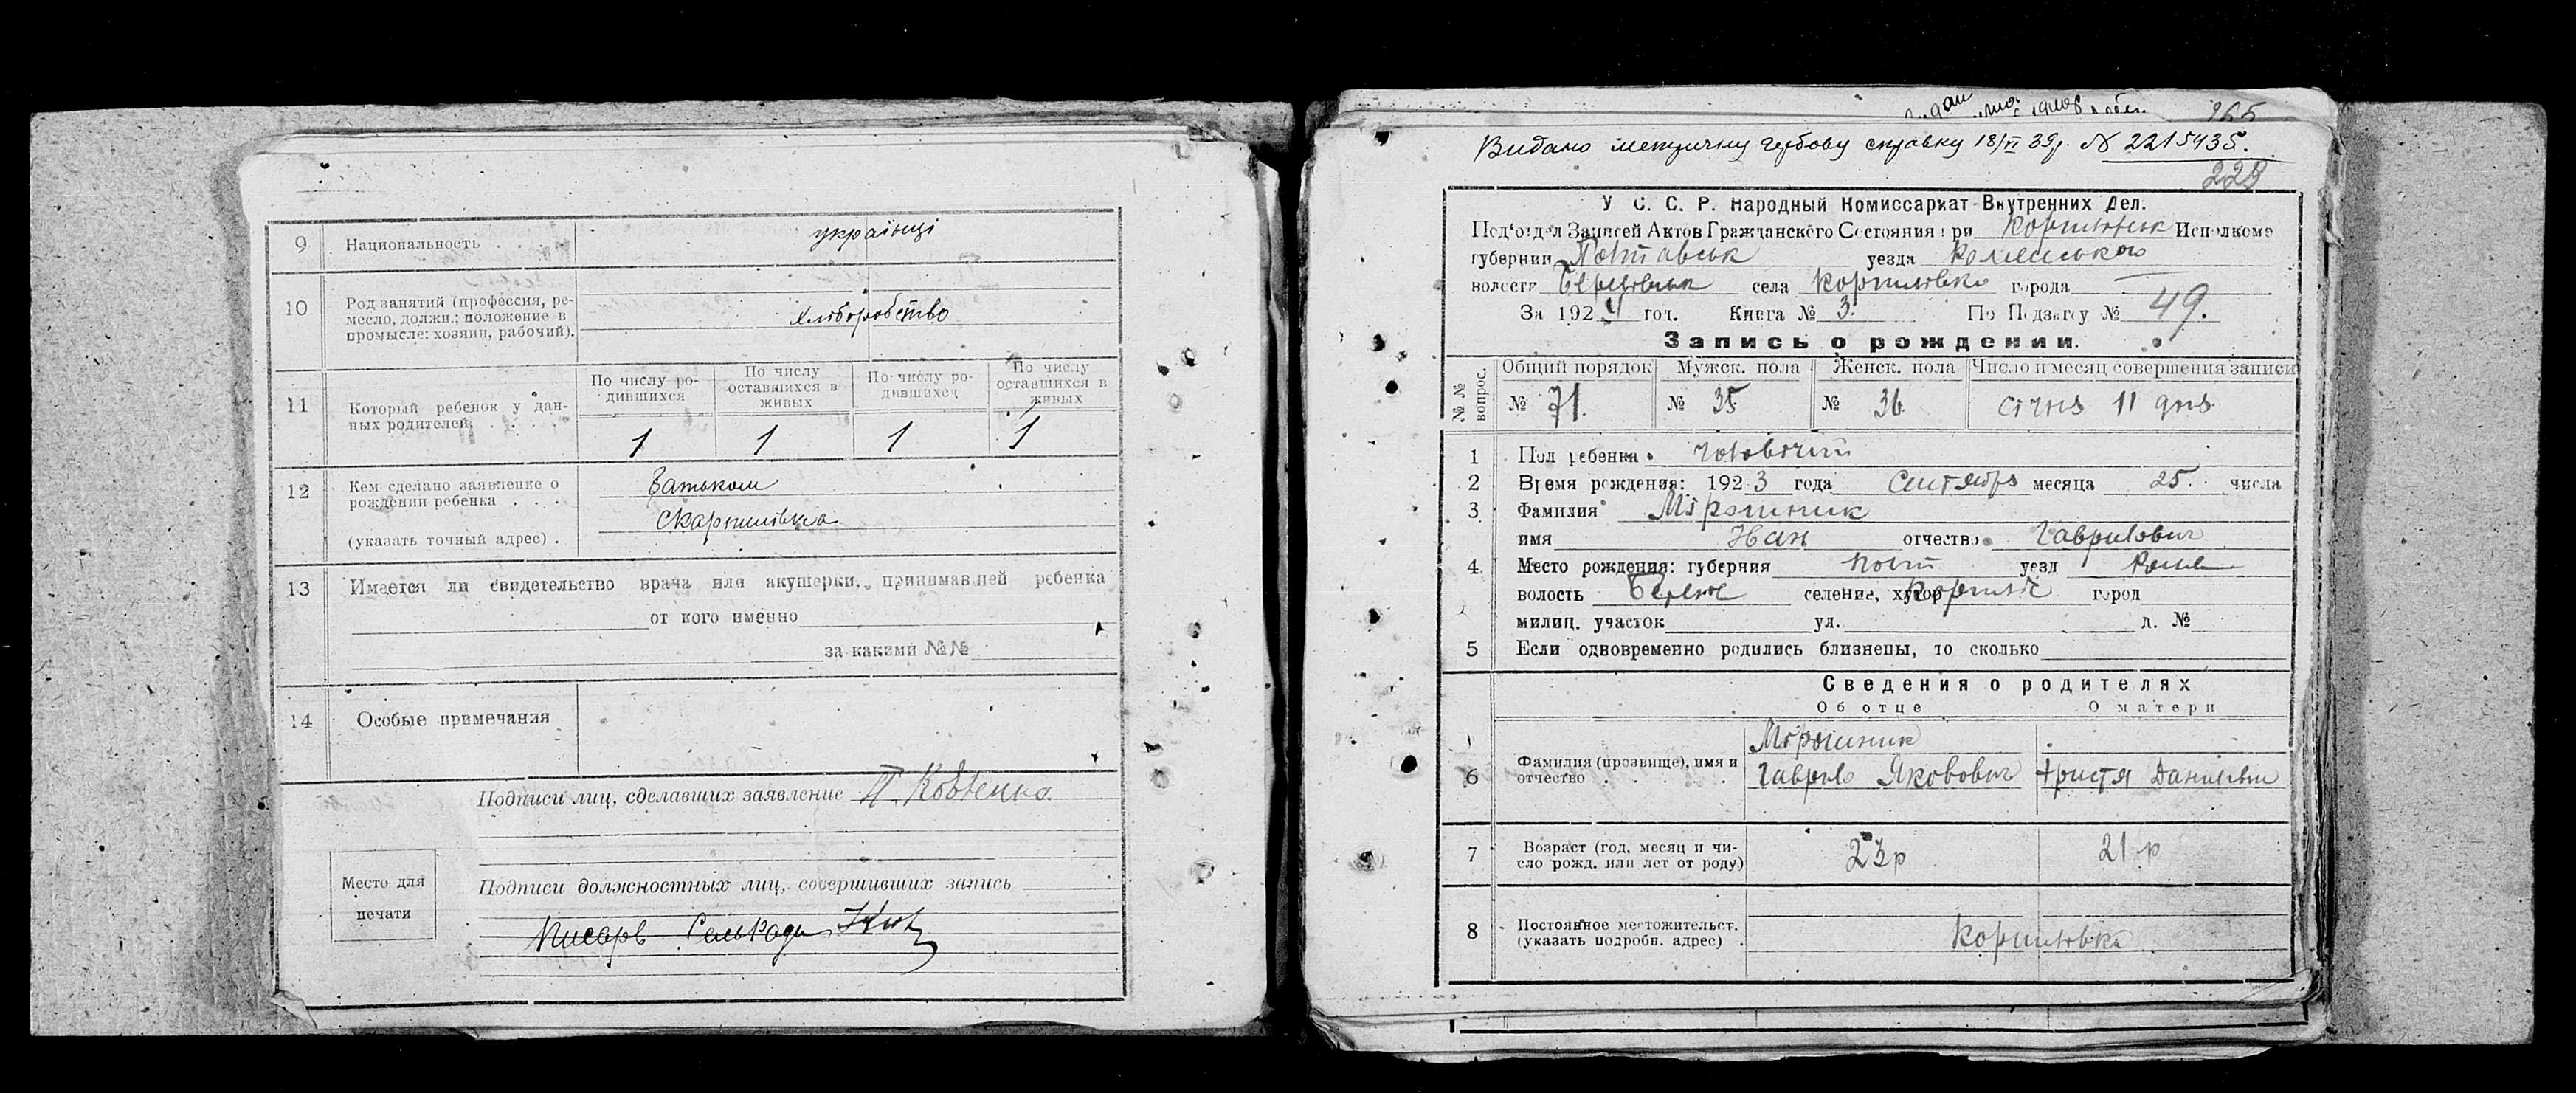 9 Национальность . . . . українці
10 Род занятий (профессия, ре-
месло, должн.; положение в
промысле: хозяин, рабочий). хліборобство
11 Который ребенок у дан-
ных родителей . . . .
По числу ро-
дившихся
По числу
оставшихся в
живых
По числу ро-
дившихся
По числу
оставшихся в
живых
1 1 1 1
12 Кем сделано заявление о
рождении ребенка . . . Батьком
(указать точный адрес) .
13 Имеется ли свидетельство врача или акушерки, принимавшей ребенка
от кого именно
за какими №№
14 Особые примечания
Подписи лиц, сделавших заявление
Место для
печати
Подписи должностных лиц, совершивших запись
Писарь
265
Видано метричну гербову справку 18/VI 39р. № 2215435.
228
У. С. С. Р. Народный Комиссариат Внутренних Дел.
Под'отдел Записей Актов Гражданского Состояния при Исполкоме
губернии Полтавськ уезда Роменського
волости села города
За 1924 год. Книга № 3. По Подзагсу № 49.
Запись о рождении.
№№ вопрос.
Общий порядок Мужск. пола Женск. пола Число и месяц совершения записи
№ 71. № 35 № 36 січня 11 дня
1 Пол ребенка чоловічий
2 Время рождения: 1923 года Сентября месяца 25. числа
3 Фамилия Мірошник
имя Иван отчество Гаврилович
4 Место рождения: губерния Полт уезд Ромен
волость селение, хутор город
милиц. участок ул. д. №
5 Если одновременно родились близнецы, то сколько
Сведения о родителях
Об отце О матери
6 Фамилия (прозвище), имя и
отчество . . . . .
Мірошник
Гаврило Якович Христя Данилівна
7 Возраст (год, месяц и чи-
сло рожд. или лет от роду) 23р 21 р
8 Постоянное местожительст.
(указать подробн. адрес) .